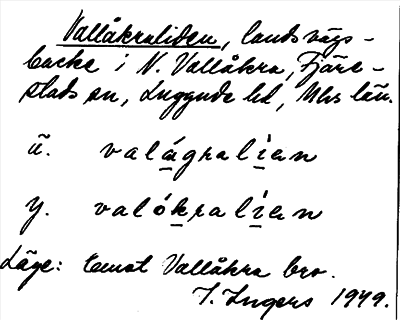 Vallåkraliden, landsvägs-
backe i N. Vallåkra, Fjäre-
stads sn, Luggude hd, Mhs län.
ä. valágralien
y. valókralien
Läge: Omst Vallåkra bro.
I. Ingers 1949.